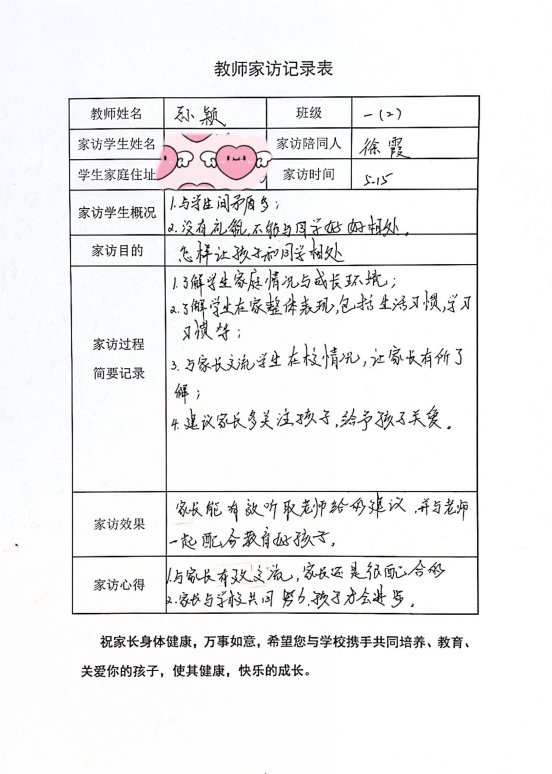 教师家访记录表
教师姓名 孙颖 班级 一(2)
家访学生姓名 家访陪同人 徐霞
学生家庭住址 家访时间 5.15
家访学生概况 1.与学生间矛盾多;
2.没有礼貌,不能与同学好好相处。
家访目的 怎样让孩子和同学相处
家访过程
简要记录
1.了解学生家庭情况与成长环境;
2.了解学生在家整体表现,包括生活习惯,学习
习惯等;
3.与家长交流学生在校情况,让家长有所了
解;
4.建议家长多关注孩子,给予孩子关爱。
家访效果 家长能有效听取老师给的建议,并与老师
一起配合教育好孩子。
家访心得 1.与家长有效交流,家长还是很配合的
2.家长与学校共同努力,孩子才会进步。
祝家长身体健康,万事如意,希望您与学校携手共同培养、教育、
关爱你的孩子,使其健康,快乐的成长。